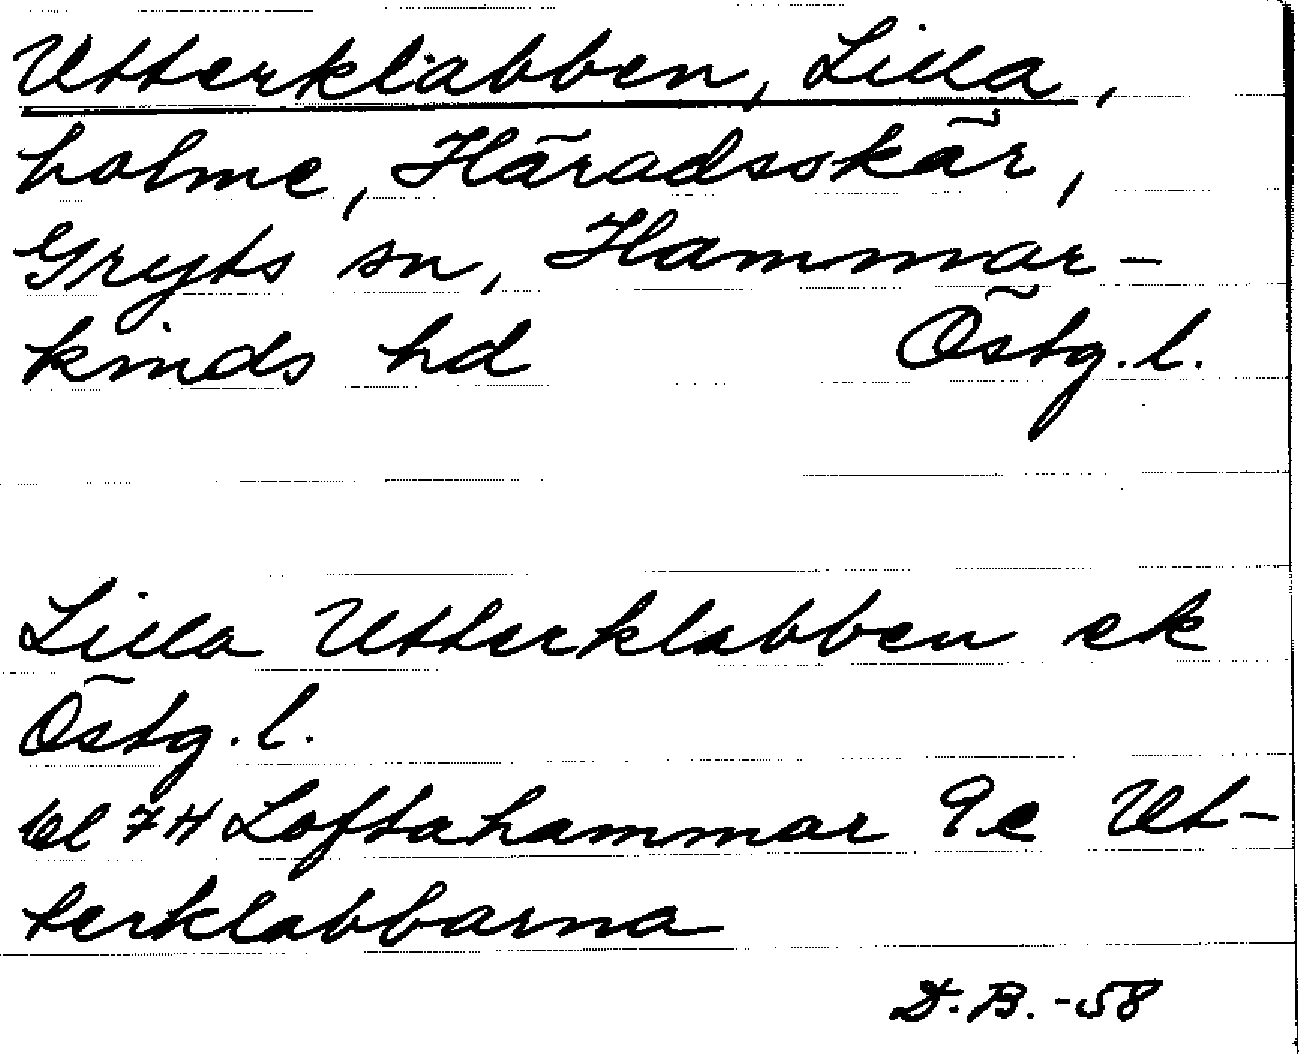 Utterklabben, Lilla,
holme, Häradsskär,
Gryts sn, Hammar-
kinds hd Östg. l.
Lilla Utterklabben ek
Östg. l.
bl 7H Loftahammar 9e Ut-
terklabbarna
D.B. -58